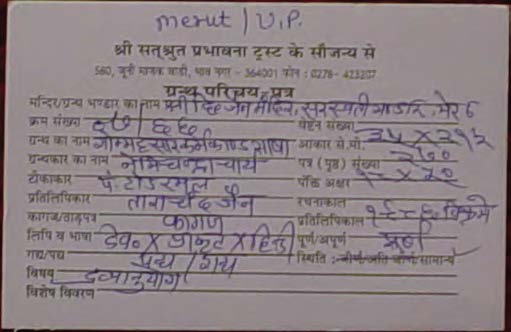 merut / U.P.
श्री सत्श्रुत प्रभावना ट्रस्ट के सौजन्य से
580, जूनी माणेक वाडी, भाव नगर - 364001 फोन : 0278- 423207
ग्रन्थ परिचय पत्र
मन्दिर/ग्रन्थ भण्डार का नाम श्री दि जैन मंदिर, सरस्वती भण्डार, मेरठ
क्रम संख्या ६६ वेष्टन संख्या
ग्रन्थ का नाम गोम्मट्टसारकर्मकाण्ड भाषा आकार से.मी.
ग्रन्थकार का नाम नेमिचन्द्राचार्य पत्र (पृष्ठ) संख्या
टीकाकार पं. टोडरमल पंक्ति अक्षर
प्रतिलिपिकार ताराचंद जैन रचनाकाल
कागज/ताड़पत्र कागज प्रतिलिपिकाल
लिपि व भाषा देव० X प्राकृत X हिन्दी पूर्ण/अपूर्ण पूर्ण
गद्य/पद्य पद्य / गद्य स्थिति : जीर्ण/अति जीर्ण/सामान्य
विषय द्रव्यानुयोग
विशेष विवरण